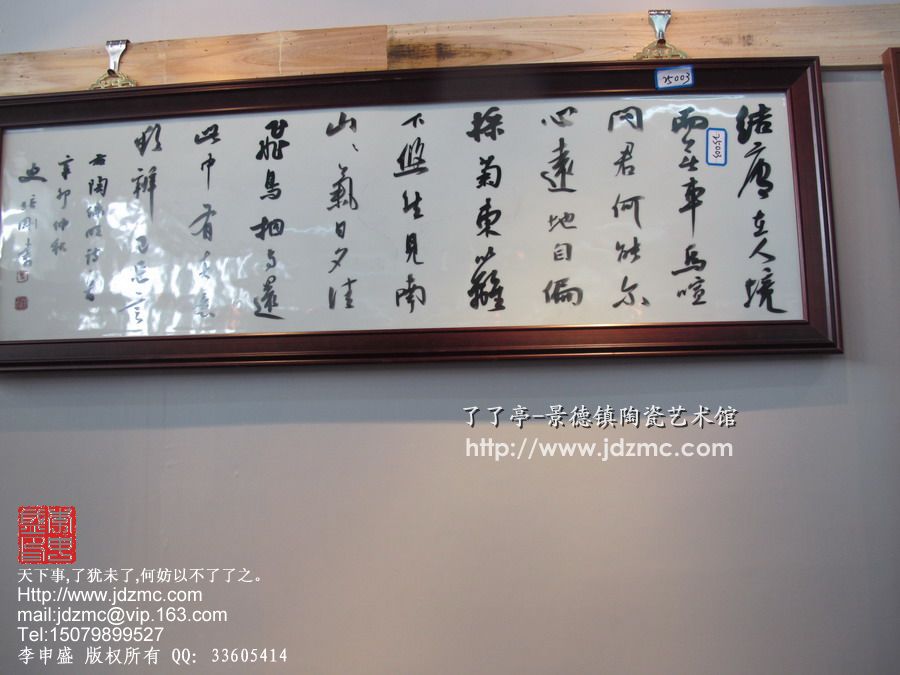 75003
75003
結廬在人境
而無車馬喧
問君何能尔
心遠地自偏
採菊東籬
下悠然見南
山、氣日夕佳
飛鳥相與還
此中有真意
欲辨已忘言
右陶渊明诗一首
辛卯仲秋
史
了了亭-景德镇陶瓷艺术馆
http://www.jdzmc.com
天下事,了犹未了,何妨以不了了之。
Http://www.jdzmc.com
mail:jdzmc@vip.163.com
Tel:15079899527
李申盛 版权所有 QQ: 33605414